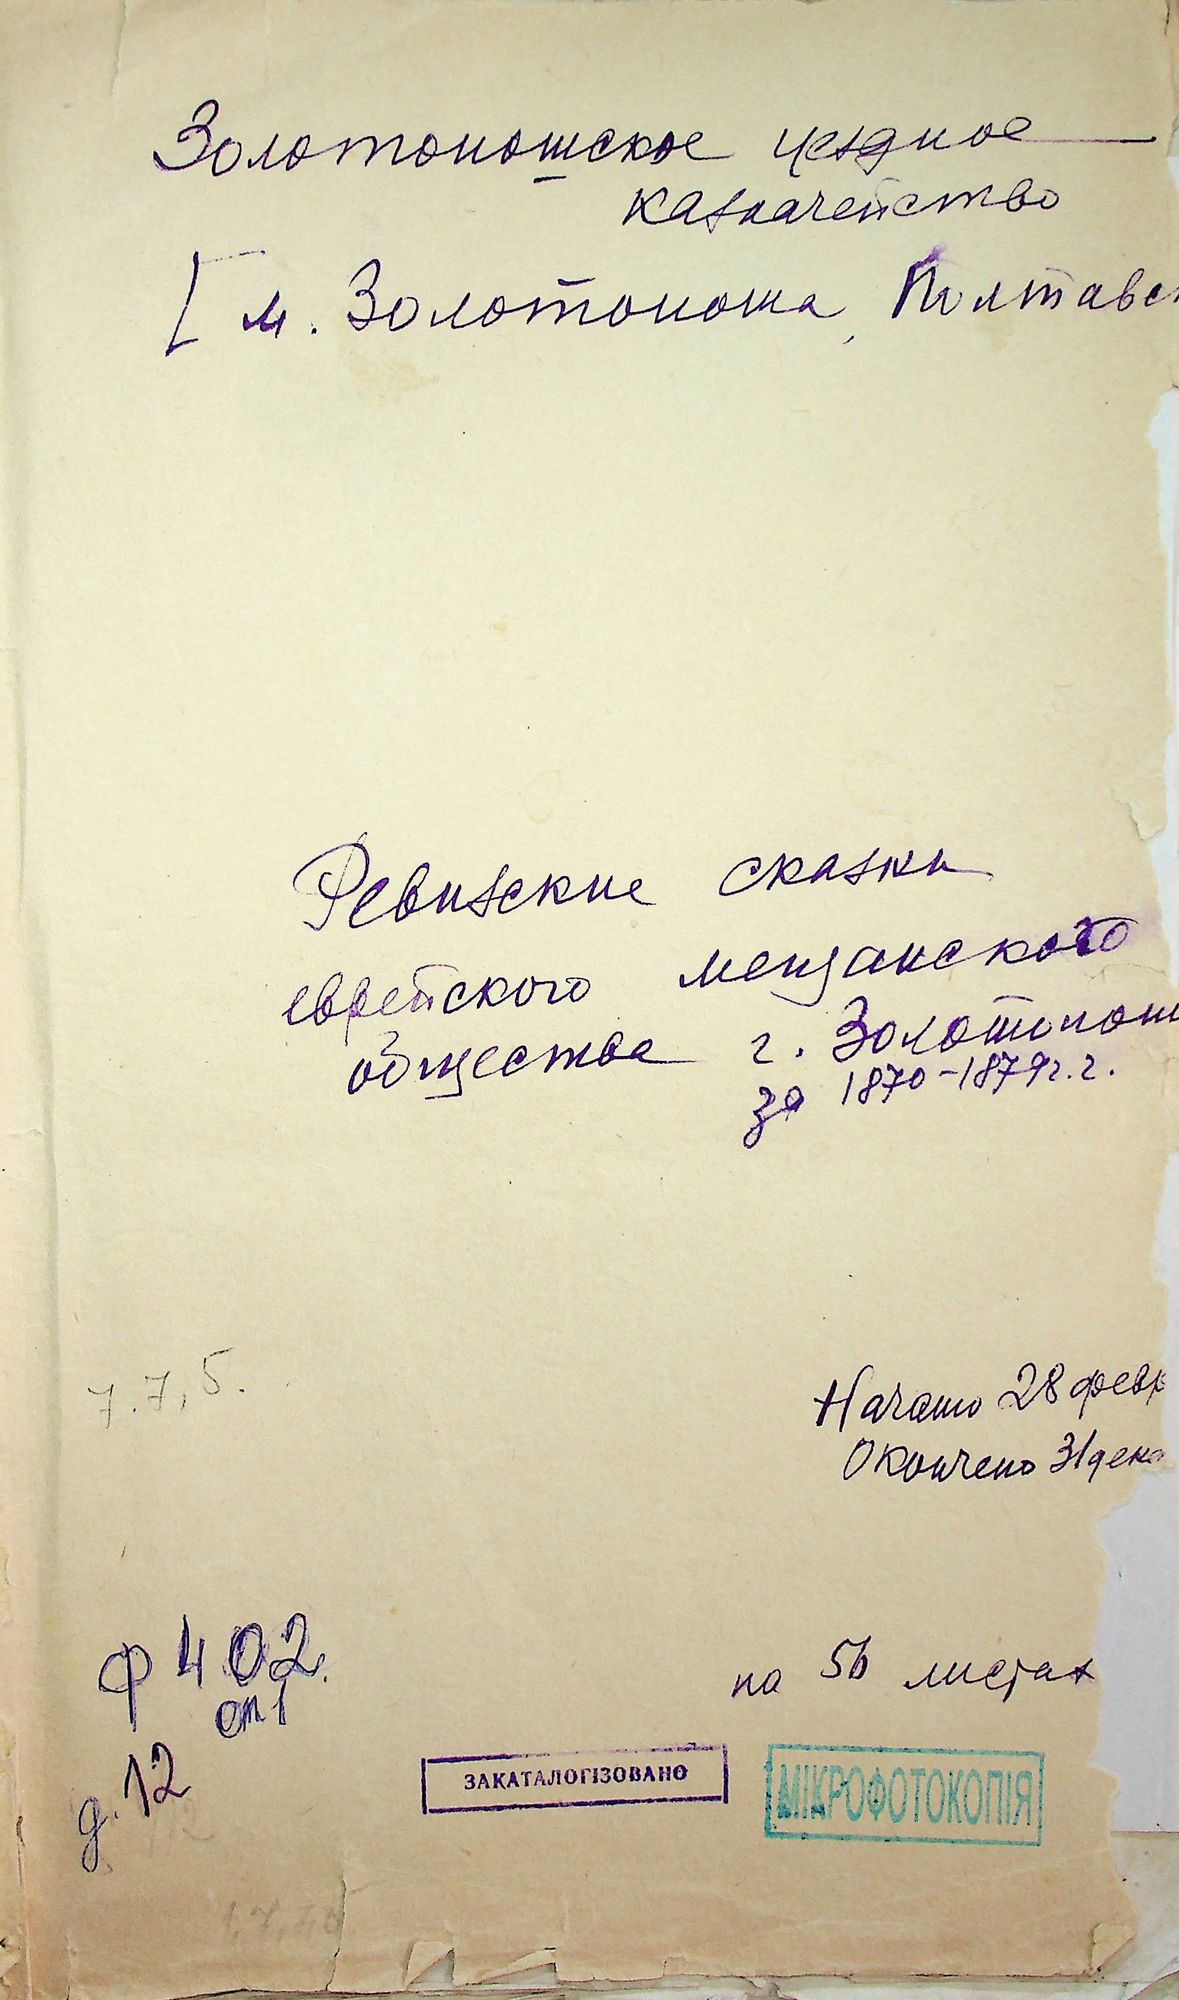 Золотоношское уездное
казначейство
[ м. Золотоноша, Полтавс
Ревизские сказки
еврейского мещанского
общества г. Золотонош
за 1870-1879г.г.
7.7,5.
Начато 28 февр
Окончено 31 дека
Ф 402.
оп 1
д. 12
на 56 листах
ЗАКАТАЛОГІЗОВАНО
МІКРОФОТОКОПІЯ